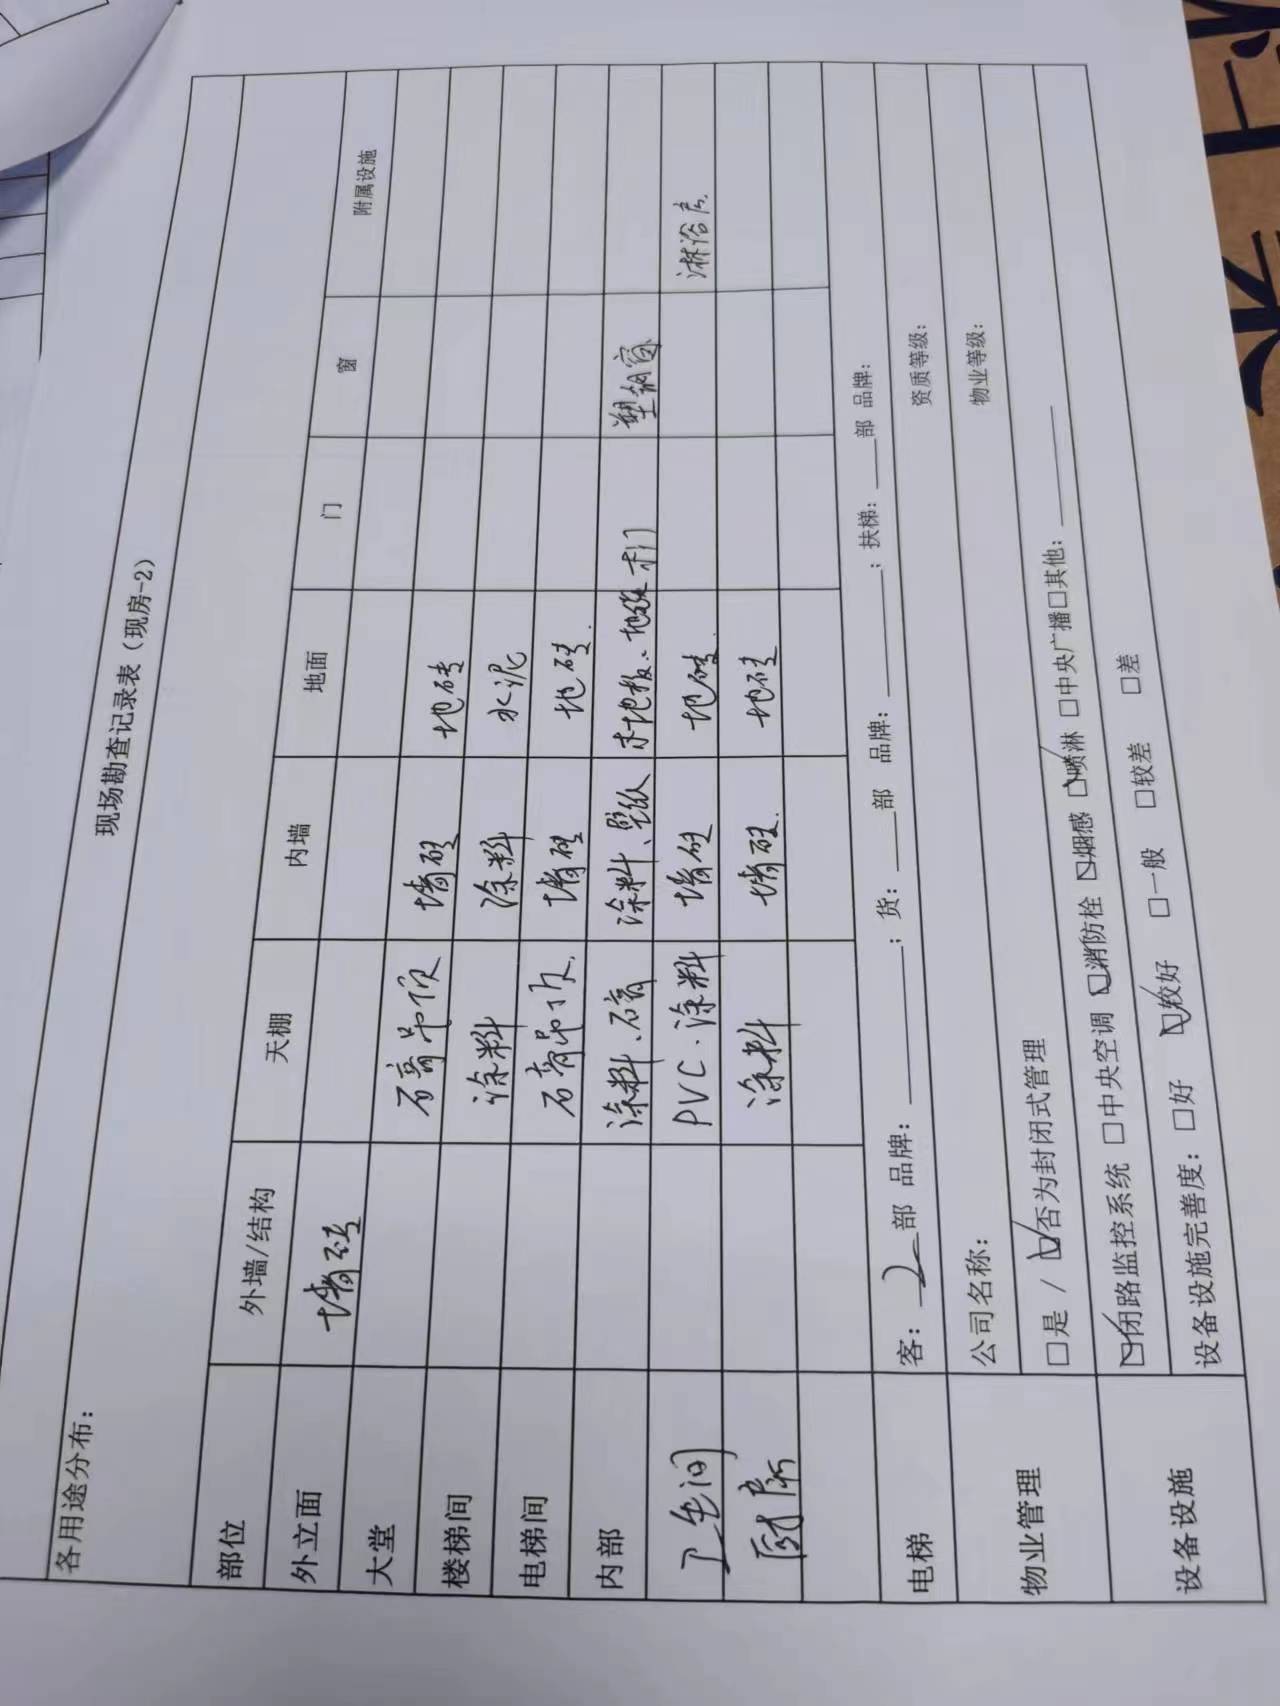 现场勘查记录表（现房-2）
各用途分布：
部位 外墙/结构 天棚 内墙 地面 门 窗 附属设施
外立面 墙砖
大堂 石膏吊顶 墙砖 地砖
楼梯间 涂料 涂料 水泥
电梯间 石膏吊顶. 墙砖 地砖.
内部 涂料、石膏 涂料、壁纸 木地板、地砖 木门 塑钢窗
卫生间 PVC、涂料 墙砖 地砖. 淋浴房.
厨房 涂料 墙砖. 地砖
电梯 客：2部 品牌：______；货：___部 品牌：______；扶梯：___部 品牌：
物业管理 公司名称： 资质等级：
□是 / ☑否为封闭式管理 物业等级：
设备设施 ☑闭路监控系统 □中央空调 ☑消防栓 ☑烟感 ☑喷淋 □中央广播 □其他：______
设备设施完善度：□好 ☑较好 □一般 □较差 □差